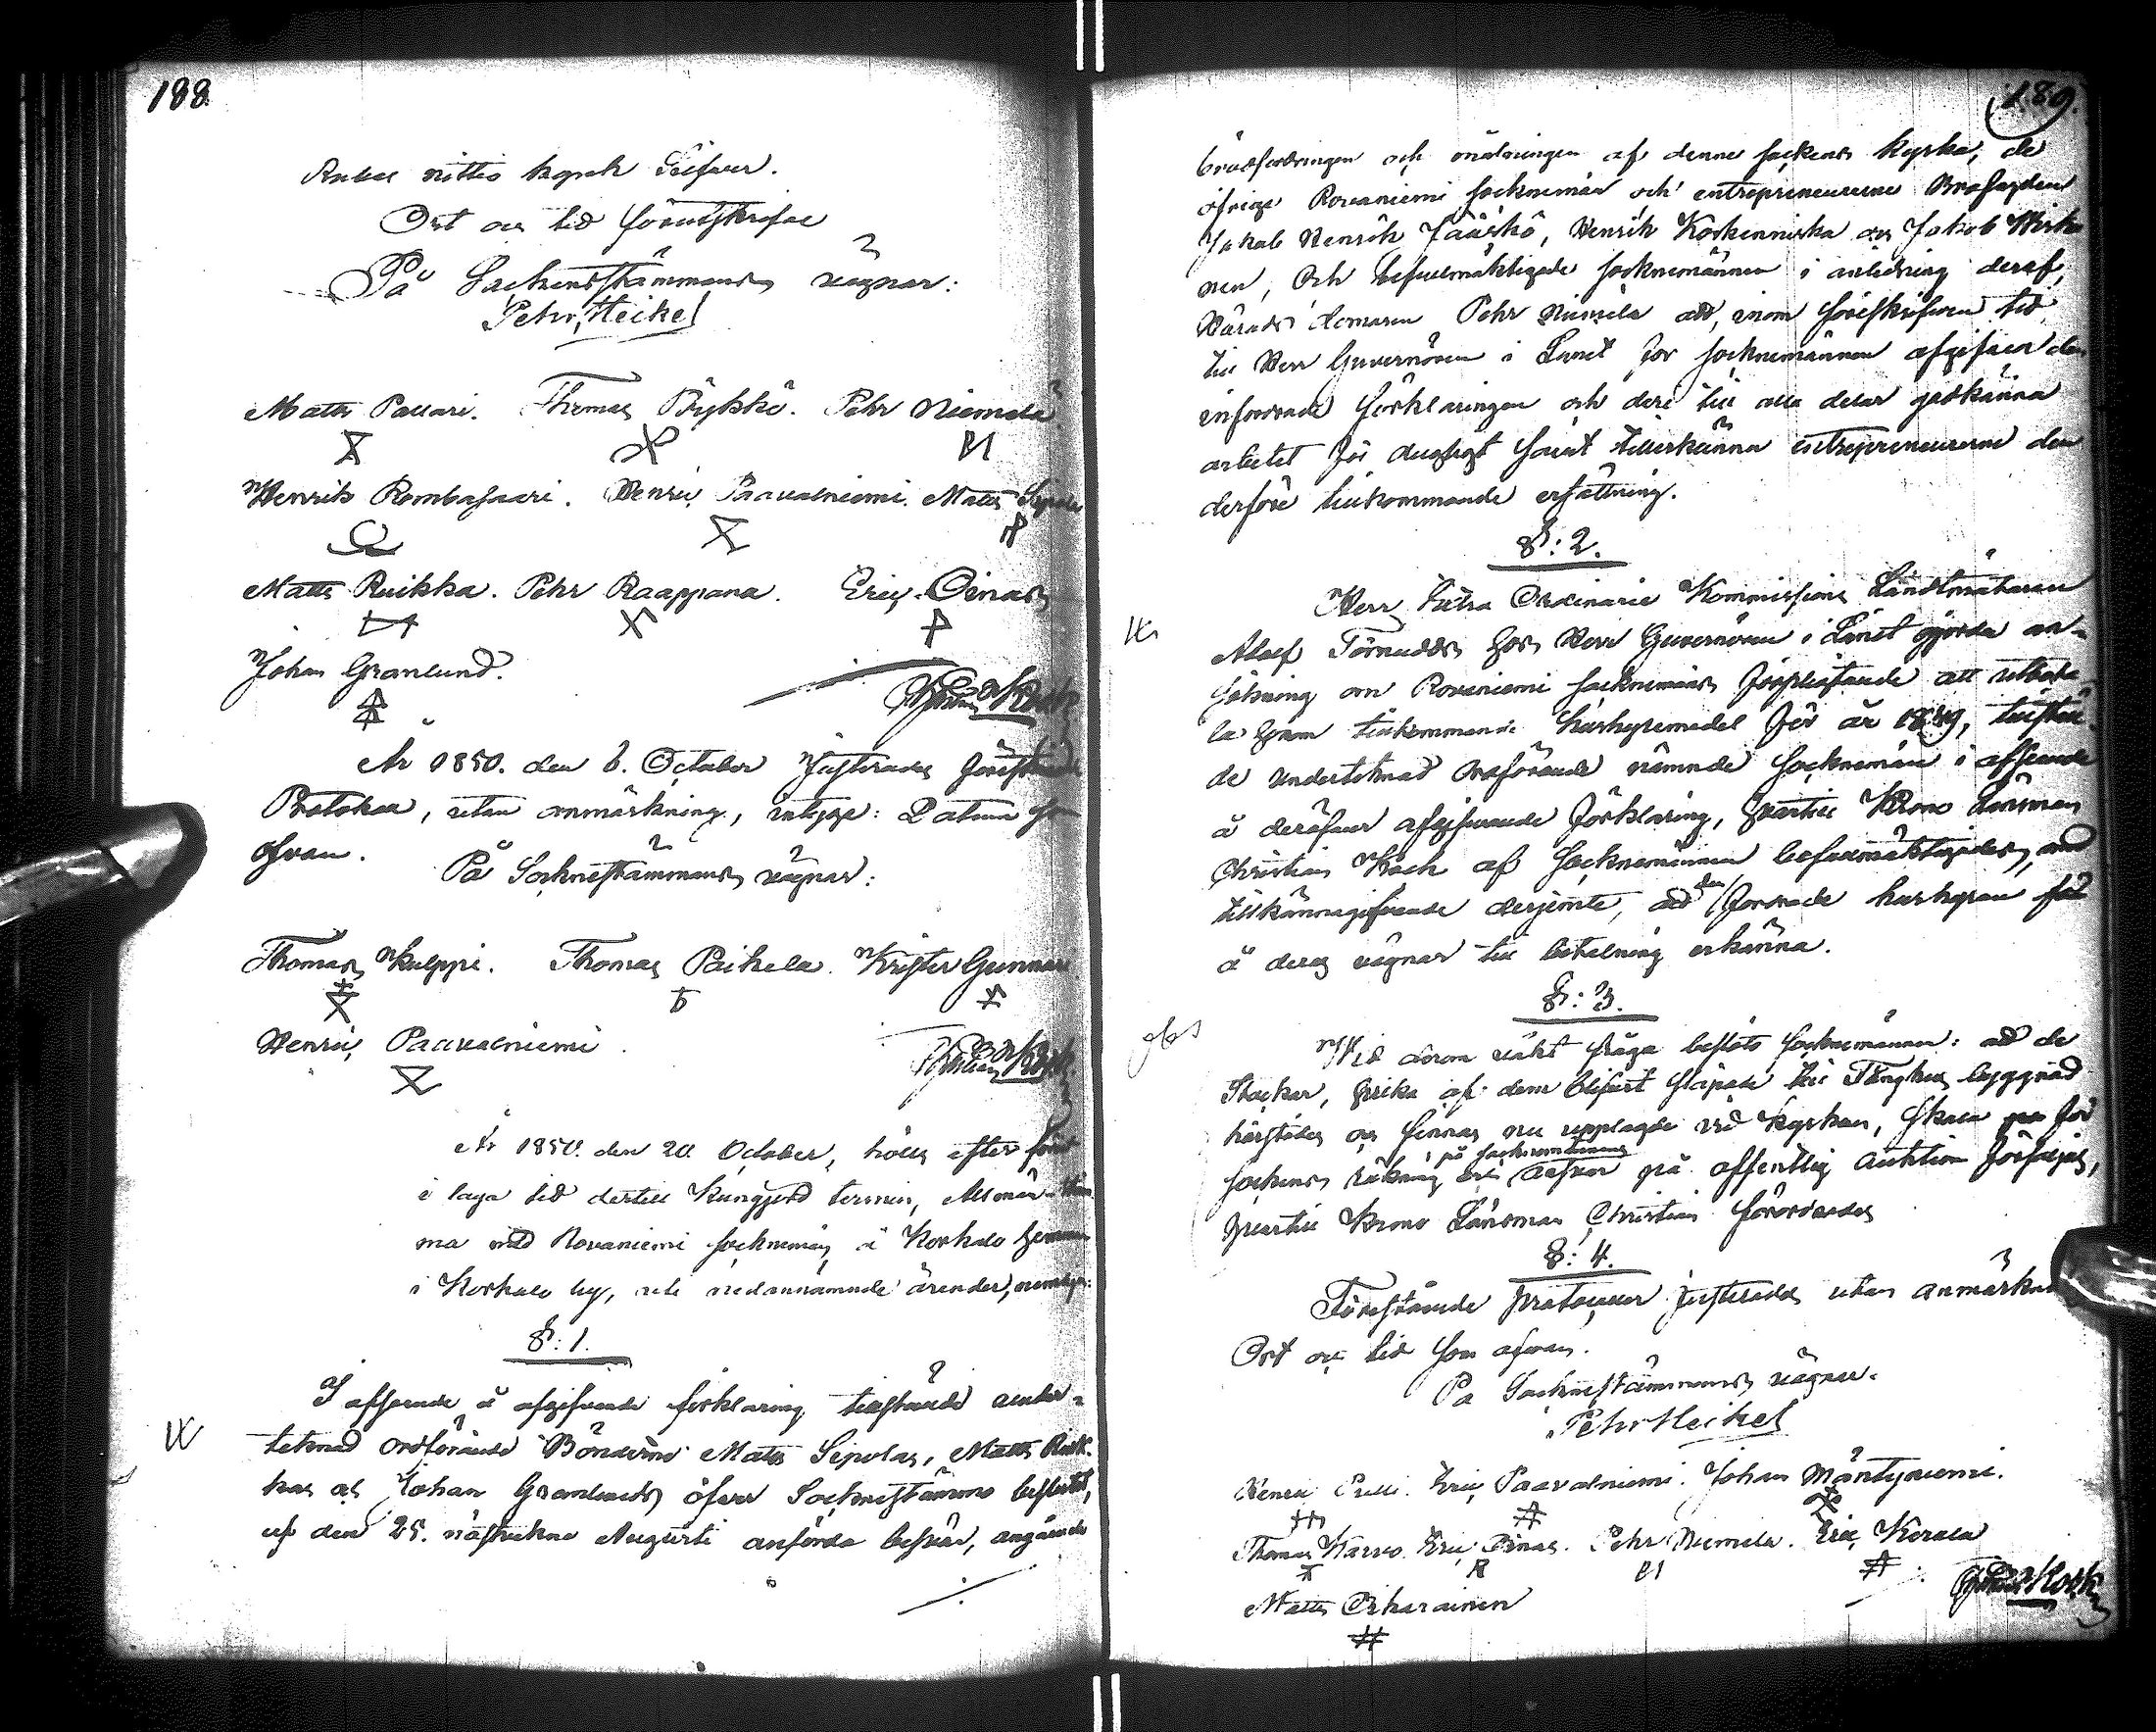 188
Rubel nittio kopek Silfver.
Ort och tid förutskrefne
På Sockenstämmans vägnar:
Pehr Heikel
Matts Pallari. Thomas Pÿkkö. Pehr Niemelä
Henrik Rombasaari. Henric Paavalniemi. Matts Sipola
Matts Ruikka. Pehr Raappana. Eric Oinas
Johan Granlund.
År 1850. den 6. October Justerades förestående
Protokoll, utan anmärkning, intyga: Datum som
ofvan.
På Socknestämmans vägnar:
Thomas Kulppi. Thomas Paikela. Krister Gunnari
Henric Paavalniemi.
År 1850. den 20 October, hölls efter förut
i laga tid dertill kungjord termin, Allmän stäm
ma med Rovaniemi socknemän, å Korkalo hemman
i Korkalo by, uti nedannämnde ärender, nemligen:
§: 1.
I afseende å afgifvande förklaring tillstånde under-
tecknad ordförande Bönderne Matts Sipolas, Matts Ruik-
kas och Johan Granlunds öfver Socknestämmo beslutet,
af den 25. näst vekne Augusti anförda besvär, angående
189.
brädfordringen och målningen af denne sockens kyrka, de
öfrige Rovaniemi socknemän och entreprenererne Brofogden
Jakob Henrik Jääskö, Henrik Koskenniska och Jakob Wirta
nen, och befullmäktigade socknemännen i anledning deraf,
Härads domaren Pehr Niemelä att, inom föreskrifven tid
till Herr Guvernören i Länet för socknemännen afgifva den
infordrade förklaringen och deri till alla delar godkänna
arbetet för dugligt samt tillerkänna entrepreneurerne den
derföre tillkommande ersättning.
§: 2.
Herr Extra Ordinarie Kommissions Landtmätaren
Adolf Törnudds hos Herr Guvernören i Länet gjorda an-
sökning om Rovaniemi socknemäns förpligtande att utbeta-
la honom tillkommande hushyremedel för år 1849, tillstäl-
de undertecknad ordförande nämnde socknemän i afseende
å deröfver afgifvande förklaring, hvartill Krono Länsman
Christian Kock af socknemännen befullmäktigades, med
tillkännagifvande derjemte, att den fordrade hushyran få
å deras vägnar till betalning erkänna.
§: 3.
obs
Wid derom väckt fråga beslöto socknemännen: att de
Stockar, hvilka af dem blifvit släpade till Fånghus byggnad
härstädes och finnas nu upplagde vid kyrkan, skola för
sockens räkning på offentlig auktion försäljas,
hvartill Krono Länsman Christian förordnades
§: 4.
Förestående protocoller justerades utan anmärkn
Ort och tid som ofvan.
På Socknestämmans vägnar.
Pehr Heikel
Henric Pulli. Eric Paavalniemi. Johan Mäntyniemi.
Thomas Karvo. Eric Oinas. Pehr Niemelä. Eric Korala
Matts Oikarainen